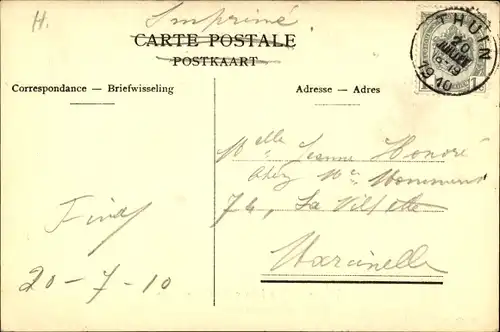 H.
Imprimé
CARTE POSTALE
POSTKAART
Correspondance — Briefwisseling
Adresse — Adres
THUIN
20
JUILLET
18-19
1910
1
Melle Jeanne Honoré
chez Mr
74, La Villette
Marcinelle
20-7-10